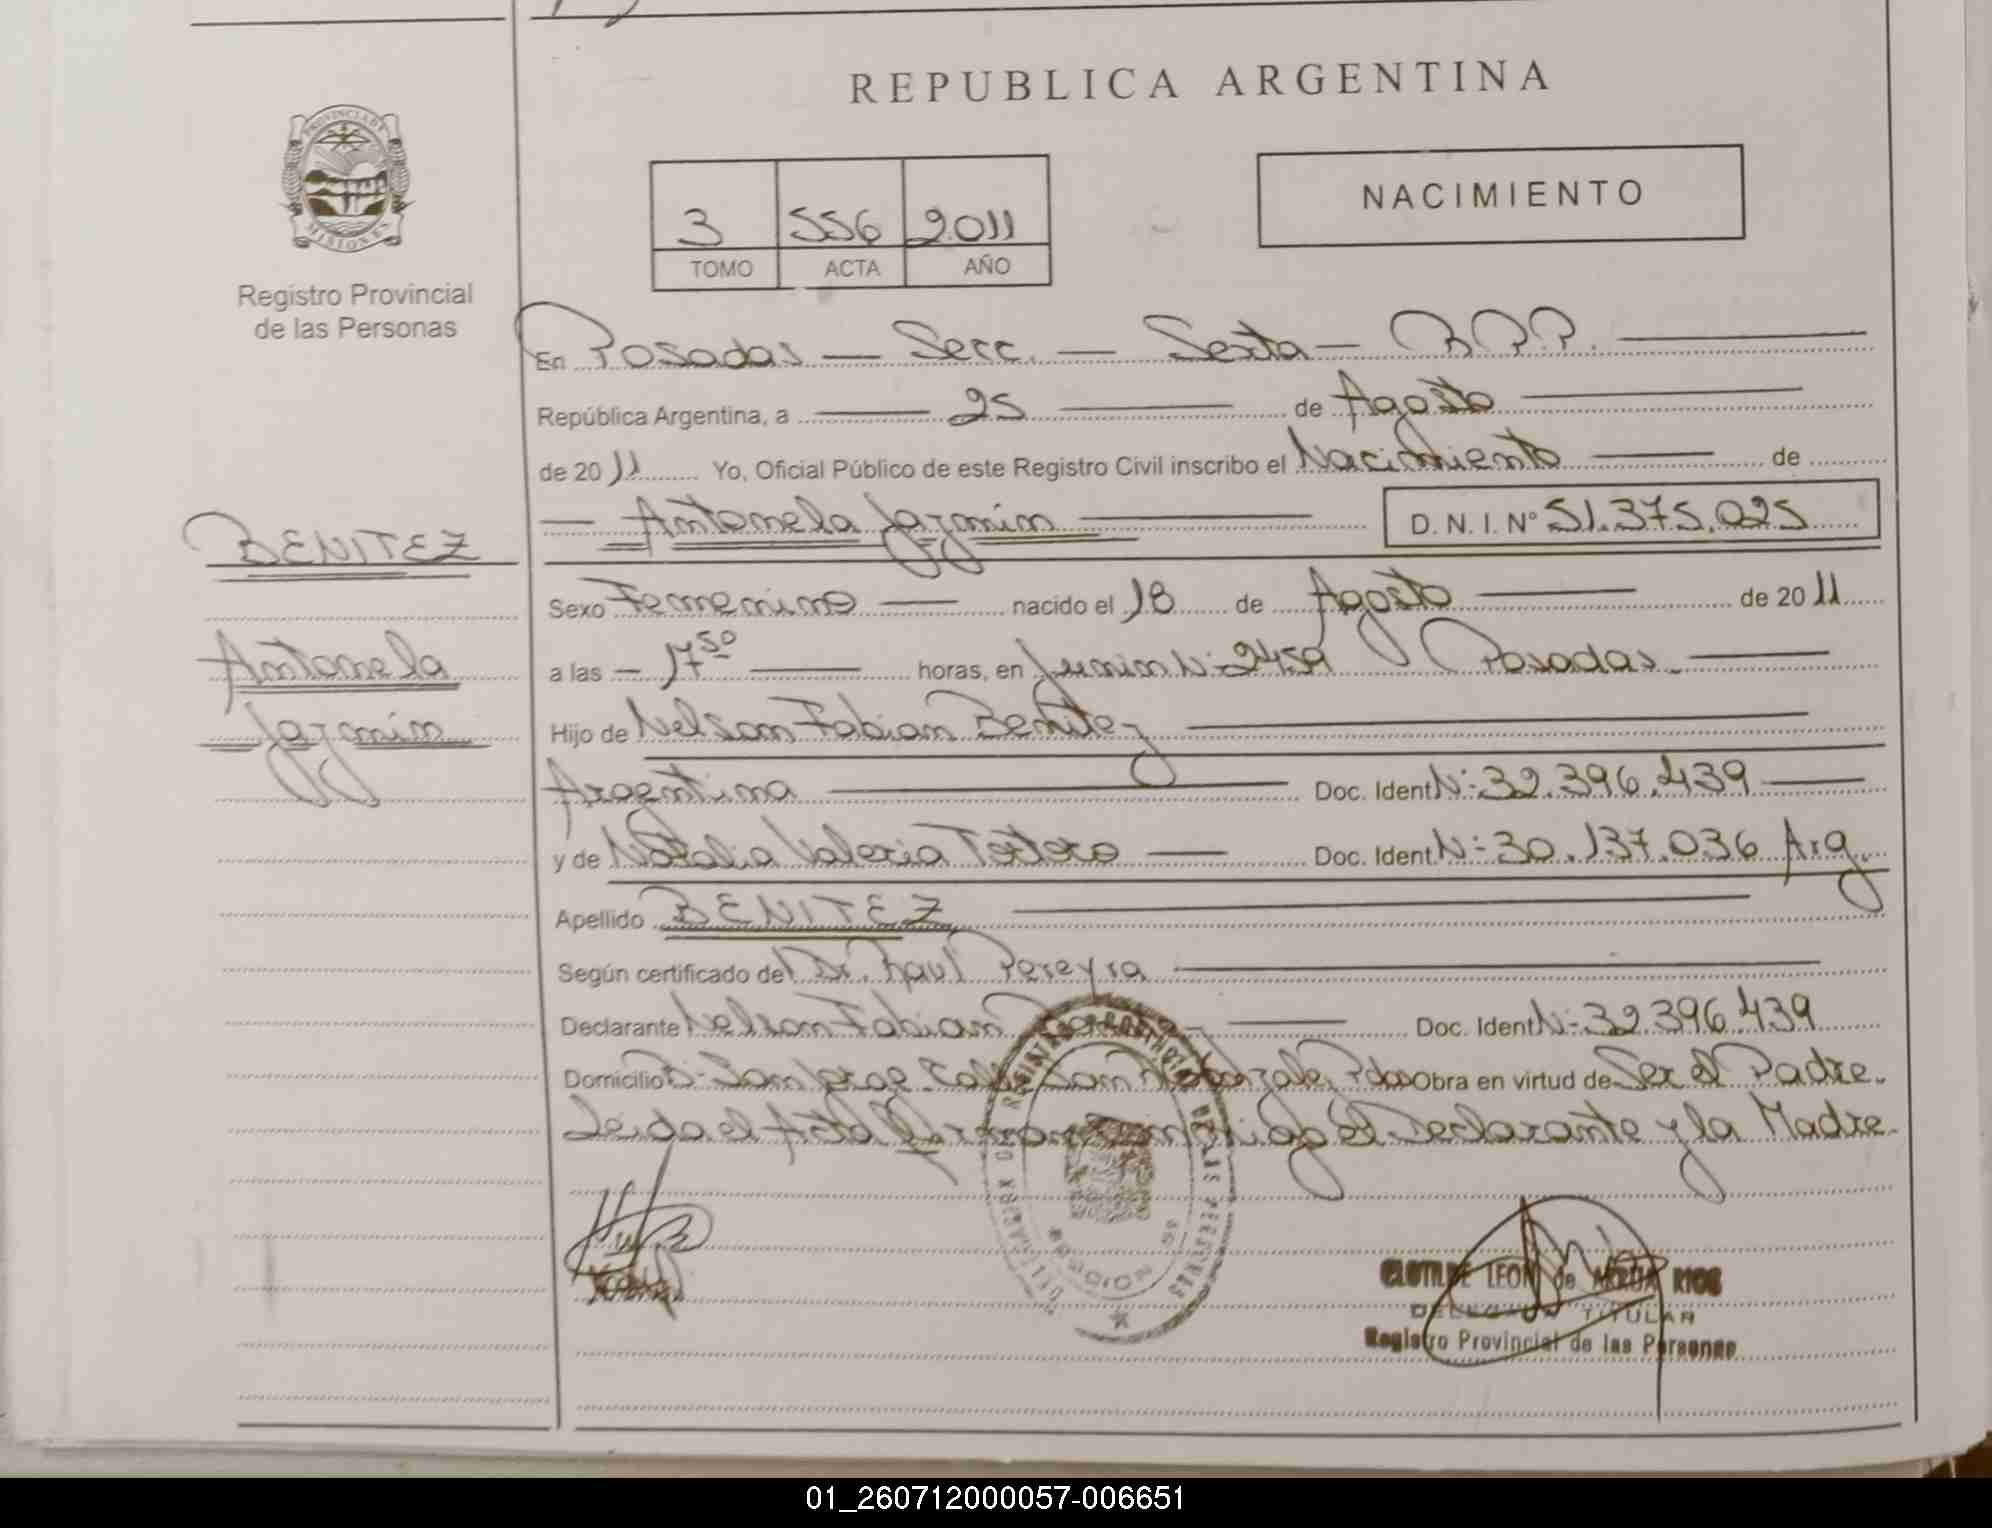 REPUBLICA ARGENTINA
PROVINCIA DE
MISIONES
Registro Provincial
de las Personas
3 556 2011
TOMO ACTA AÑO
NACIMIENTO
En Posadas — Secc. — Sexta — R.P.P.
República Argentina, a 25 de Agosto
de 2011 Yo, Oficial Público de este Registro Civil inscribo el Nacimiento de
Antonela Jazmin D. N. I. Nº 51.375.025
BENITEZ
Sexo Femenino nacido el 18 de Agosto de 2011
Antonela
a las 17 50 horas, en Junin Nº 2459 Posadas.
Jazmin
Hijo de Nelson Fabian Benitez
Argentino Doc. Ident Nº 32.396.439
y de Natalia Valeria Doc. Ident Nº 30.137.036 Arg.
Apellido BENITEZ
Según certificado del Dr. Raul Pereyra
Declarante Nelson Fabian Doc. Ident Nº 32.396.439
Domicilio Obra en virtud de Ser el Padre.
el Declarante y la Madre.
CLOTILDE LEON de RIOS
DELEGADA TITULAR
Registro Provincial de las Personas
01_260712000057-006651